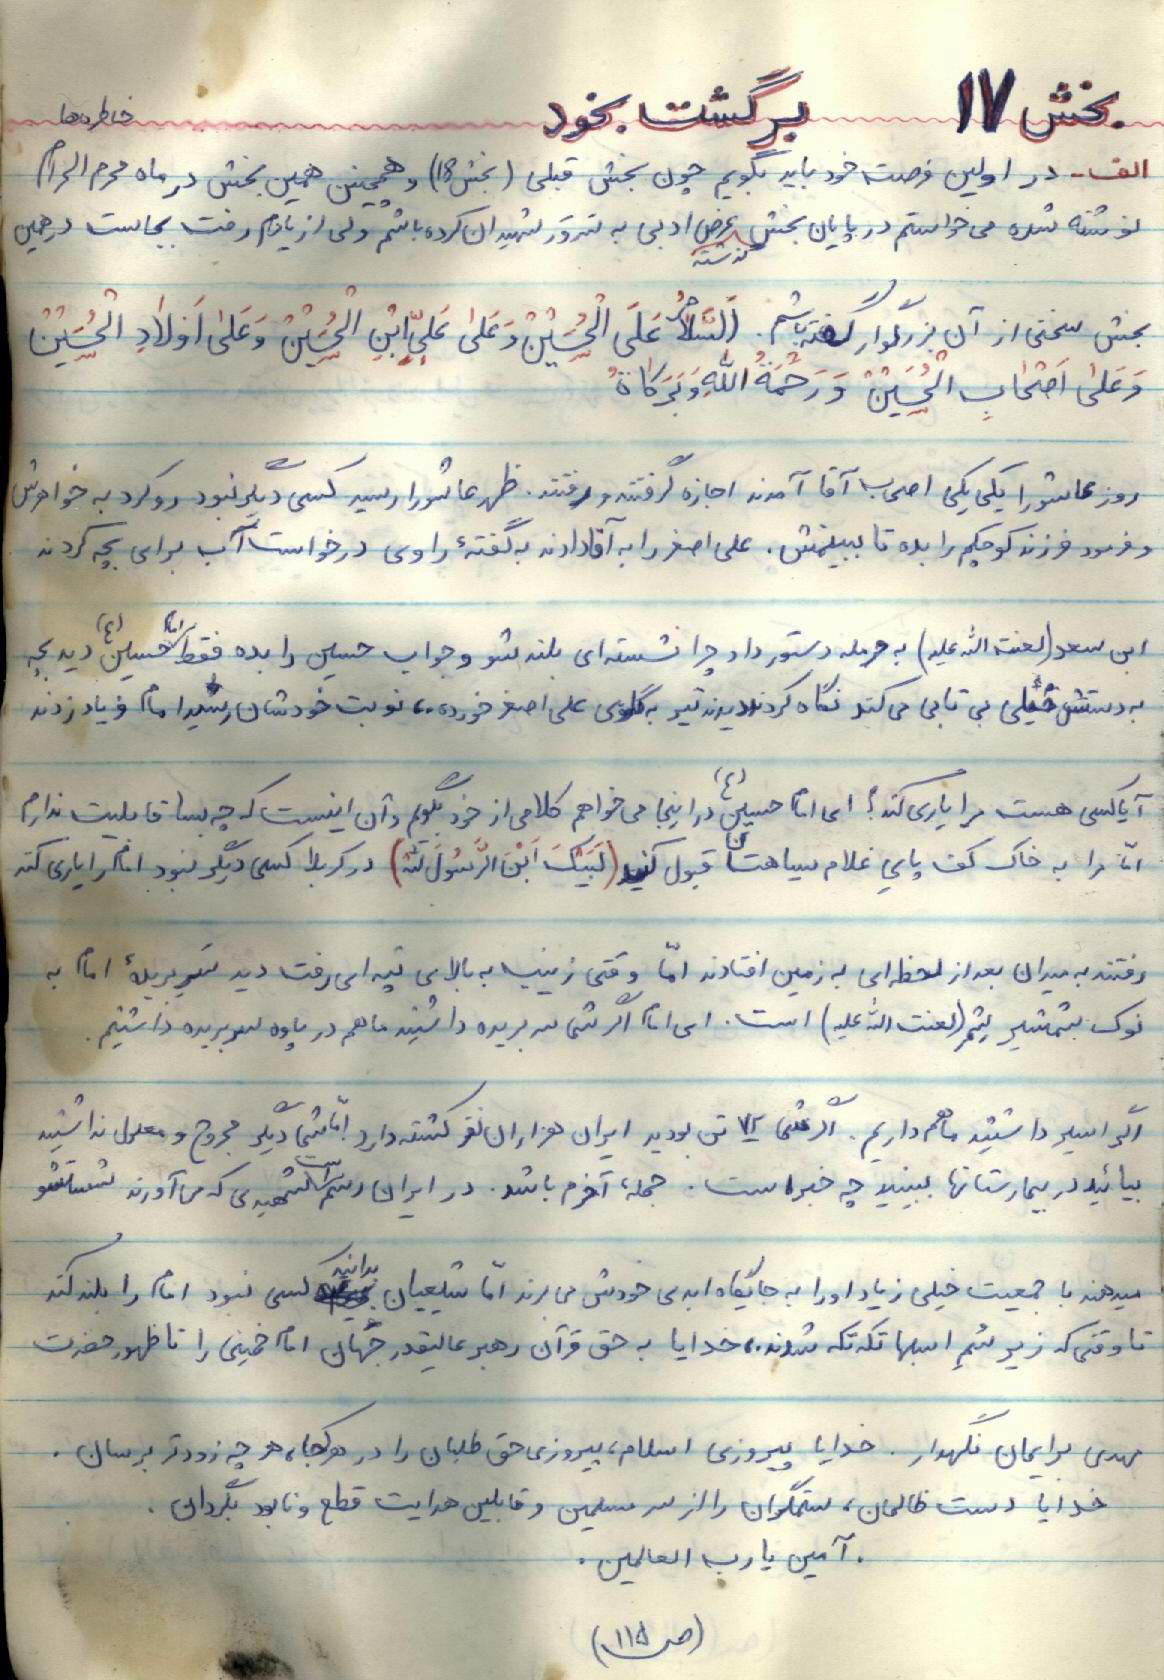 بخش ۱۷ برگشت بخود خاطره‌ها
الف - در اولین فرصت خود باید بگویم چون بخش قبلی (بخش ۱۶) و همچنین همین بخش در ماه محرم الحرام
نوشته شده می‌خواستم در پایان بخش گذشته عرض ادبی به سرور شهیدان کرده باشم ولی از یادم رفت بجاست در همین
بخش سخنی از آن بزرگوار گفته باشم. اَلسَّلامُ عَلَی الْحُسَیْنْ وَ عَلیٰ عَلیِّ ابْنِ الْحُسَیْنْ وَ عَلیٰ اَوْلادِ الْحُسَیْنْ
وَ عَلیٰ اَصْحٰابِ الْحُسَیْنْ وَ رَحْمَةُ اللّٰهِ وَ بَرَکاةُ
روز عاشورا یکی یکی اصحاب آقا آمدند اجازه گرفتند و رفتند. ظهر عاشورا رسید کسی دیگر نبود رو کرد به خواهرش
و فرمود فرزند کوچکم را بده تا ببینمش. علی اصغر را به آقا دادند به گفتهٔ راوی درخواست آب برای بچه کردند
ابن سعد (لعنت الله علیه) به حرمله دستور داد چرا نشسته‌ای بلند شو و جواب حسین را بده فقط امام حسین (ع) دید بچه
به دستش خیلی بی تابی می‌کند نگاه کردند دیدند تیر به گلوی علی اصغر خورده،، نوبت خودشان رسید امام فریاد زدند
آیا کسی هست مرا یاری کند؟ ای امام حسین (ع) در اینجا می‌خواهم کلامی از خود بگویم و آن اینست که چه بسا قابلیت ندارم
امّا مرا به خاک کف پایِ غلام سیاهتان قبول کنید (لَبَّیْکَ اَبْنَ الرَّسُولَ لَلّٰهْ) در کربلا کسی دیگر نبود امام را یاری کند
رفتند به میدان بعد از لحظه‌ای به زمین افتادند امّا وقتی زینب به بالای تپه‌ای رفت دید سَرِ بریدهٔ امام به
نوک شمشیر شمر (لعنت الله علیه) است. ای امام اگر شما سر بریده داشتید ما هم در پاوه سر بریده داشتیم.
اگر اسیر داشتید ما هم داریم. اگر شما ۷۲ تن بودید ایران هزاران نفر کشته دارد امّا شما دیگر مجروح و معلول نداشتید
بیائید در بیمارستانها ببینید چه خبر است. جملهٔ آخرم باشد. در ایران رسم است شهیدی که می‌آورند شستشو
میدهند با جمعیت خیلی زیاد او را به جایگاه ابدی خودش می‌برند امّا شیعیان بدانید کسی نبود امام را بلند کند
تا وقتی که زیر سُمِ اسبها تکه تکه شدند،، خدایا به حق قرآن رهبر عالیقدر جهان امام خمینی را تا ظهور حضرت
مهدی برایمان نگهدار. خدایا پیروزی اسلام، پیروزی حق طلبان را در هر کجا، هر چه زودتر برسان.
خدایا دست ظالمان، ستمگران را از سر مسلمین و قابلین هدایت قطع و نابود بگردان.
. آمین یا رب العالمین.
(ص ۱۱۵)